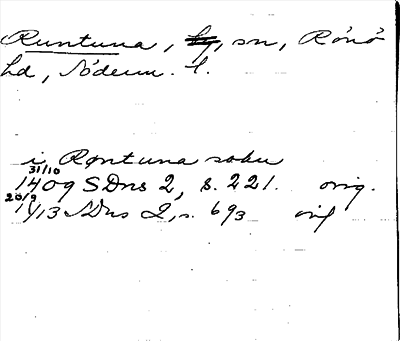 Runtuna, by, sn, Rönö
hd, Söderm. l.
i Røntuna sokn
31/10
1409 SDns 2, s. 221. orig.
20/9
1413 SDns 2, s. 693 orig